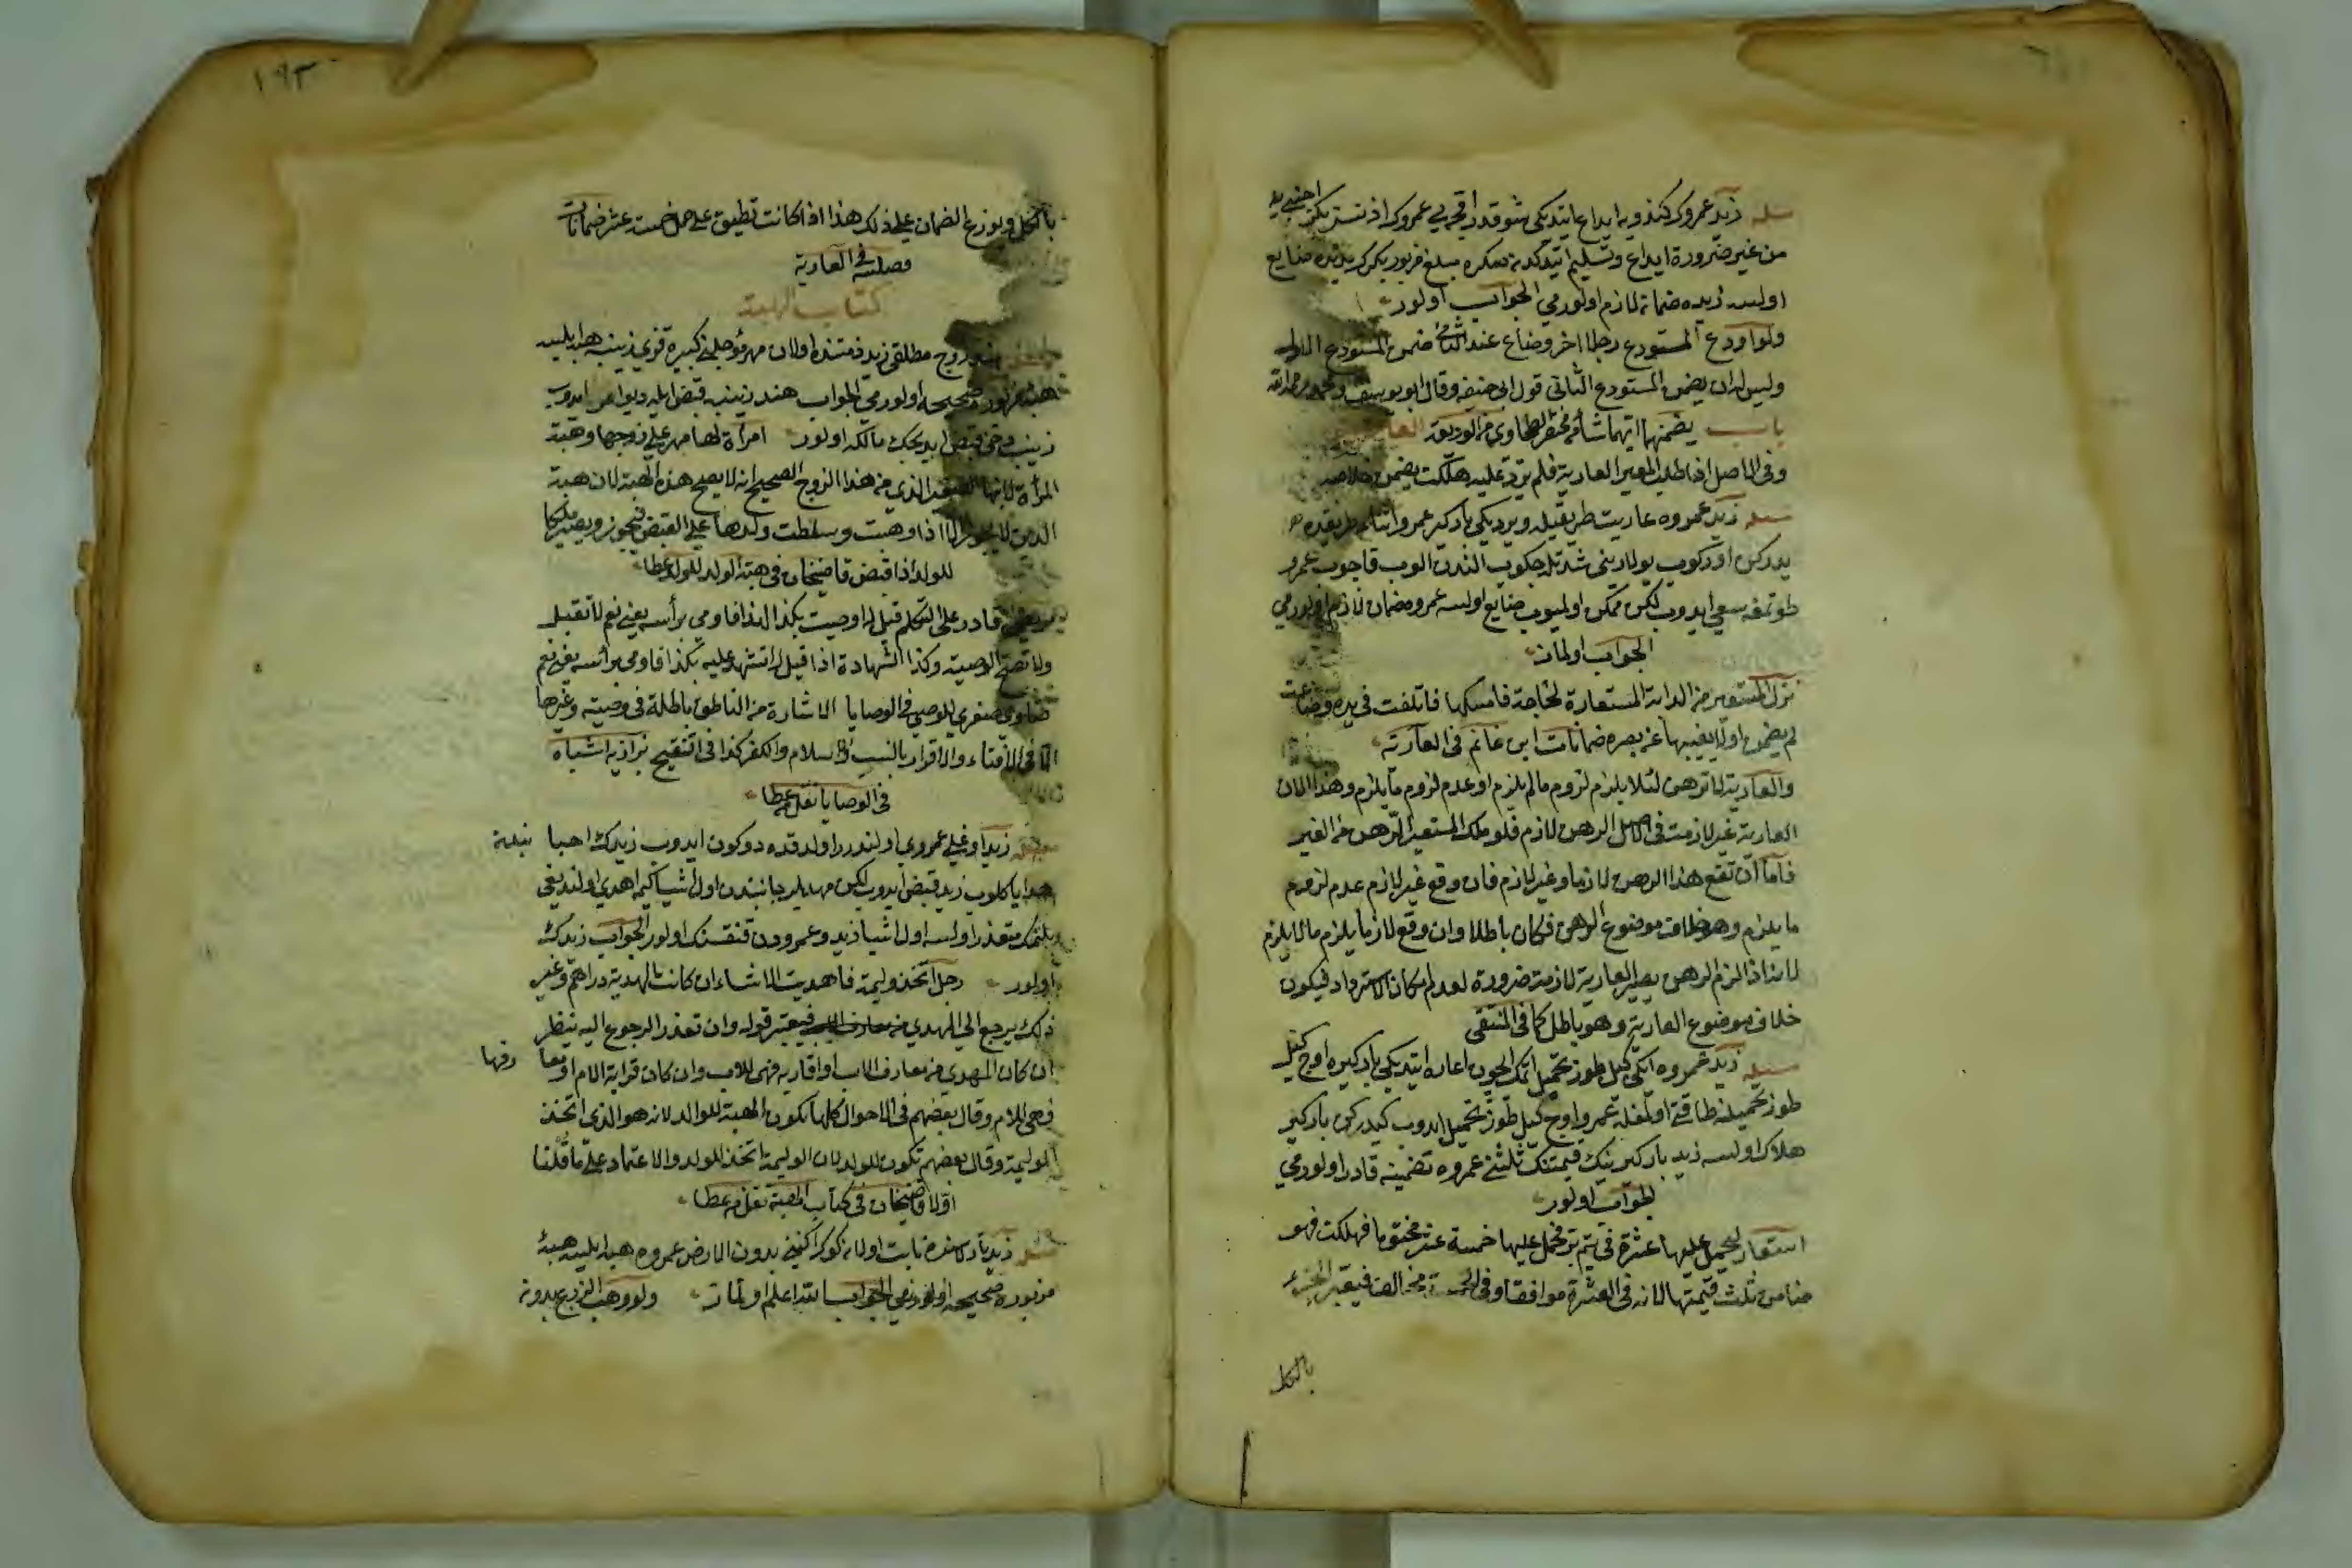 مسئله زيد عمروك كندويه ايداع ايتديكى شو قدر اقچه يى عمروك اذنسز بكر اجنبى يه
من غير ضرورة ايداع وتسليم ايتدكدنصكره مبلغ مزبور بكرك يدنده ضايع
اولسه زيده ضمانه لازم اولورمى الجواب اولور
ولو اودع المستودع رجلا اخر وضاع عند الثانى ضمن المستودع الاول
وليس له ان يضمن المستودع الثانى قول ابى حنيفه وقال ابو يوسف ومحمد رحمهما الله
يضمنهما ايهما شاء مختصر الطحاوى من الوديعة
باب
وفى الاصل اذا طلب المعير العارية فلم يرد عليه هلكت يضمن خلاصه
مسئله زيد عمروه عاريت طريقيله ويرديكى باركير عمرو اثناء طريقده
يدركن اوركوب يولارينى شدتله چكوب الندن الوب قاچوب عمرو
طوتمغه سعى ايدوب لكن ممكن اولميوب ضايع اولسه عمروه ضمان لازم اولورمى
الجواب اولماز
نزل المستعير من الدابة المستعارة لحاجة فامسكها فاتلفت فى يده وضاعت
لم يضمن اولا يغيبها عن بصره ضمانات ابن غانم فى العارية
والعارية لا ترهن لئلا يلزم لزوم ما لم يلزم او عدم لزوم ما يلزم وهذا لان
العارية غير لازمة فى الاصل الرهن لازم فلو ملك المستعير الرهن من الغير
فاما ان تقع هذا الرهن لازما وغير لازم فان وقع غير لازم عدم لزوم
ما يلزم وهو خلاف موضوع الرهن فكان باطلا وان وقع لازما يلزم ما لا يلزم
لانه اذا لزم الرهن يصير العارية لازمة ضرورة لعدم امكان الاسترداد فيكون
خلاف موضوع العارية وهو باطل كما فى المنتقى
مسئله زيد عمروه ايكى كيل طوز تحميل ايتمك ايچون اعاره ايتديكى باركيره اوچ كيل
طوز تحميلنه طاقتى اولمغله عمرو اوچ كيل طوز تحميل ايدوب كيدركن باركير
هلاك اولسه زيد باركيرينك قيمتنك ثلثنى عمروه تضمينه قادر اولورمى
الجواب اولور
استعار ليحمل عليها عشرة فحمل عليها خمسة عشر مختوما فهلكت فهو
ضامن ثلث قيمتها لانه فى العشرة موافقا وفى الخمسة مخالفا فيعتبر الجزء
بالكل
١٩٣
بالكل ويوزع الضمان على ذلك هذا اذا كانت تطيق على حمل خمسة عشر ضمانات
فضليه فى العارية
كتاب الهبة
هند زوج مطلقى زيد ذمتنده اولان مهر مؤجلنى كبيره قزى زينبه هبه ايليسه
هبه مزبوره صحيحه اولورمى الجواب هند زينبه قبض ايله ديو امر ايدوب
زينب دخى قبض ايديجك مالكه اولور امرأة لها مهر على زوجها وهبة
المرأة لابنها الصغير الذى من هذا الزوج الصحيح انه لا يصح هذه الهبة لان هبة
الدين لا يجوز الا اذا وهبت وسلطت ولدها على القبض فيجوز ويصير ملكا
للولد اذا قبض قاضيخان فى هبة الوالد للولد عطا
مريض قادر على التكلم قيل له اوصيت بكذا لكذا فاومى برأسه يعنى نعم لا تقبل
ولا تصح الوصية وكذا الشهادة اذا قيل له اتشهد عليه بكذا فاومى برأسه يعنى نعم
فتاوى صغرى للوصى فى الوصايا الاشارة من الناطق باطلة فى وصية وغيرها
الا فى الافتاء والاقرار بالنسب والاسلام والكفر كذا فى تنقيح بزازيه اشباه
فى الوصايا نقل من عطا
مسئله زيد اوغلى عمروى اولندررا ولدقده دوكون ايدوب زيدك احبا سندن
هدايا كلوب زيد قبض ايدوب لكن مهديلر جانبندن اول اشيا كيمه اهدى اولنديغى
بلنمك متعذر اولسه اول اشيا زيد وعمرودن قنقسنك اولور الجواب زيدك
اولور رجل اتخذ وليمة فاهديت الاشياء ان كانت الهدية دراهم وغير
ذلك يرجع الى المهدى فيعتبر قوله وان تعذر الرجوع اليه ينظر
ان كان المهدى من معارف الاب او اقاربه فهى للاب وان كان قرابة الام او معارفها
فهى للام وقال بعضهم فى الاحوال كلها تكون الهبة للوالد لانه هو الذى اتخذ
الوليمة وقال بعضهم تكون للولد لان الوليمة اتخذ للولد والاعتماد على ما قلنا
اولا قاضيخان فى كتاب الهبة نقل من عطا
مسئله زيد تارلاسنده نابت اولان كوك اكينى بدون الارض عمروه هبه ايليسه هبهٔ
مزبوره صحيحه اولورمى الجواب الله اعلم اولماز ولو وهب الزرع بدونه